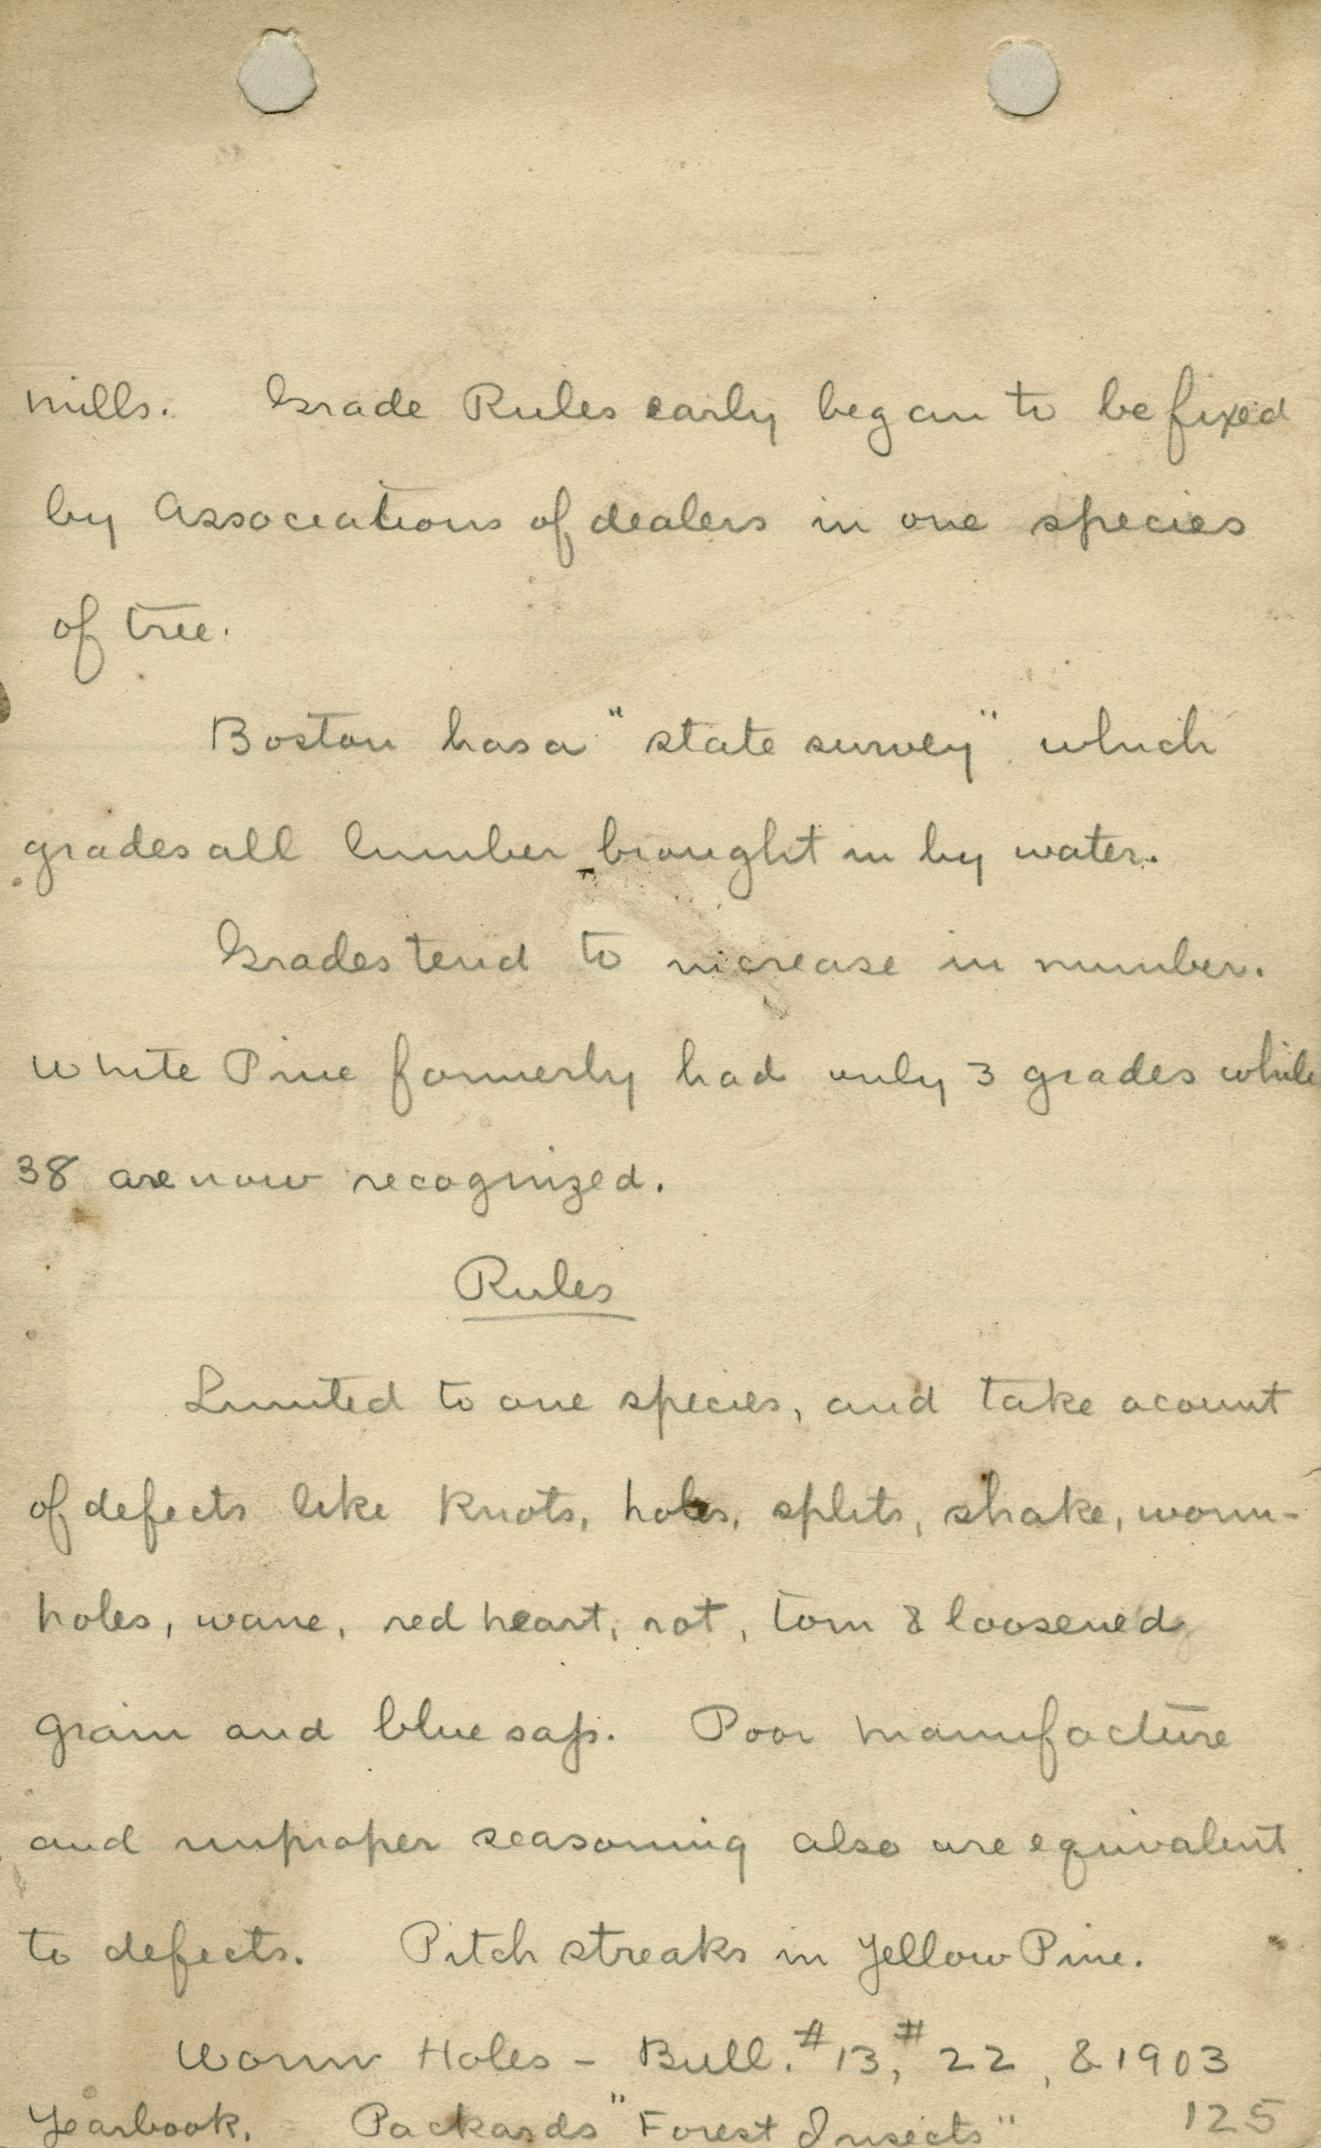 mills. Grade Rules early began to be fixed
by Associations of dealers in one species
of tree.
Boston has a "state survey" which
grades all lumber brought in by water.
Grades tend to increase in number.
White Pine formerly had only 3 grades while
38 are now recognized.
Rules
Limited to one species, and take acount
of defects like knots, holes, splits, shake, worm-
holes, wane, red heart, rot, torn & loosened
grain and blue sap. Poor manufacture
and improper seasoning also are equivalent
to defects. Pitch streaks in Yellow Pine.
Worm Holes - Bull. #13, #22, & 1903
Yearbook. Packards "Forest Insects"
125